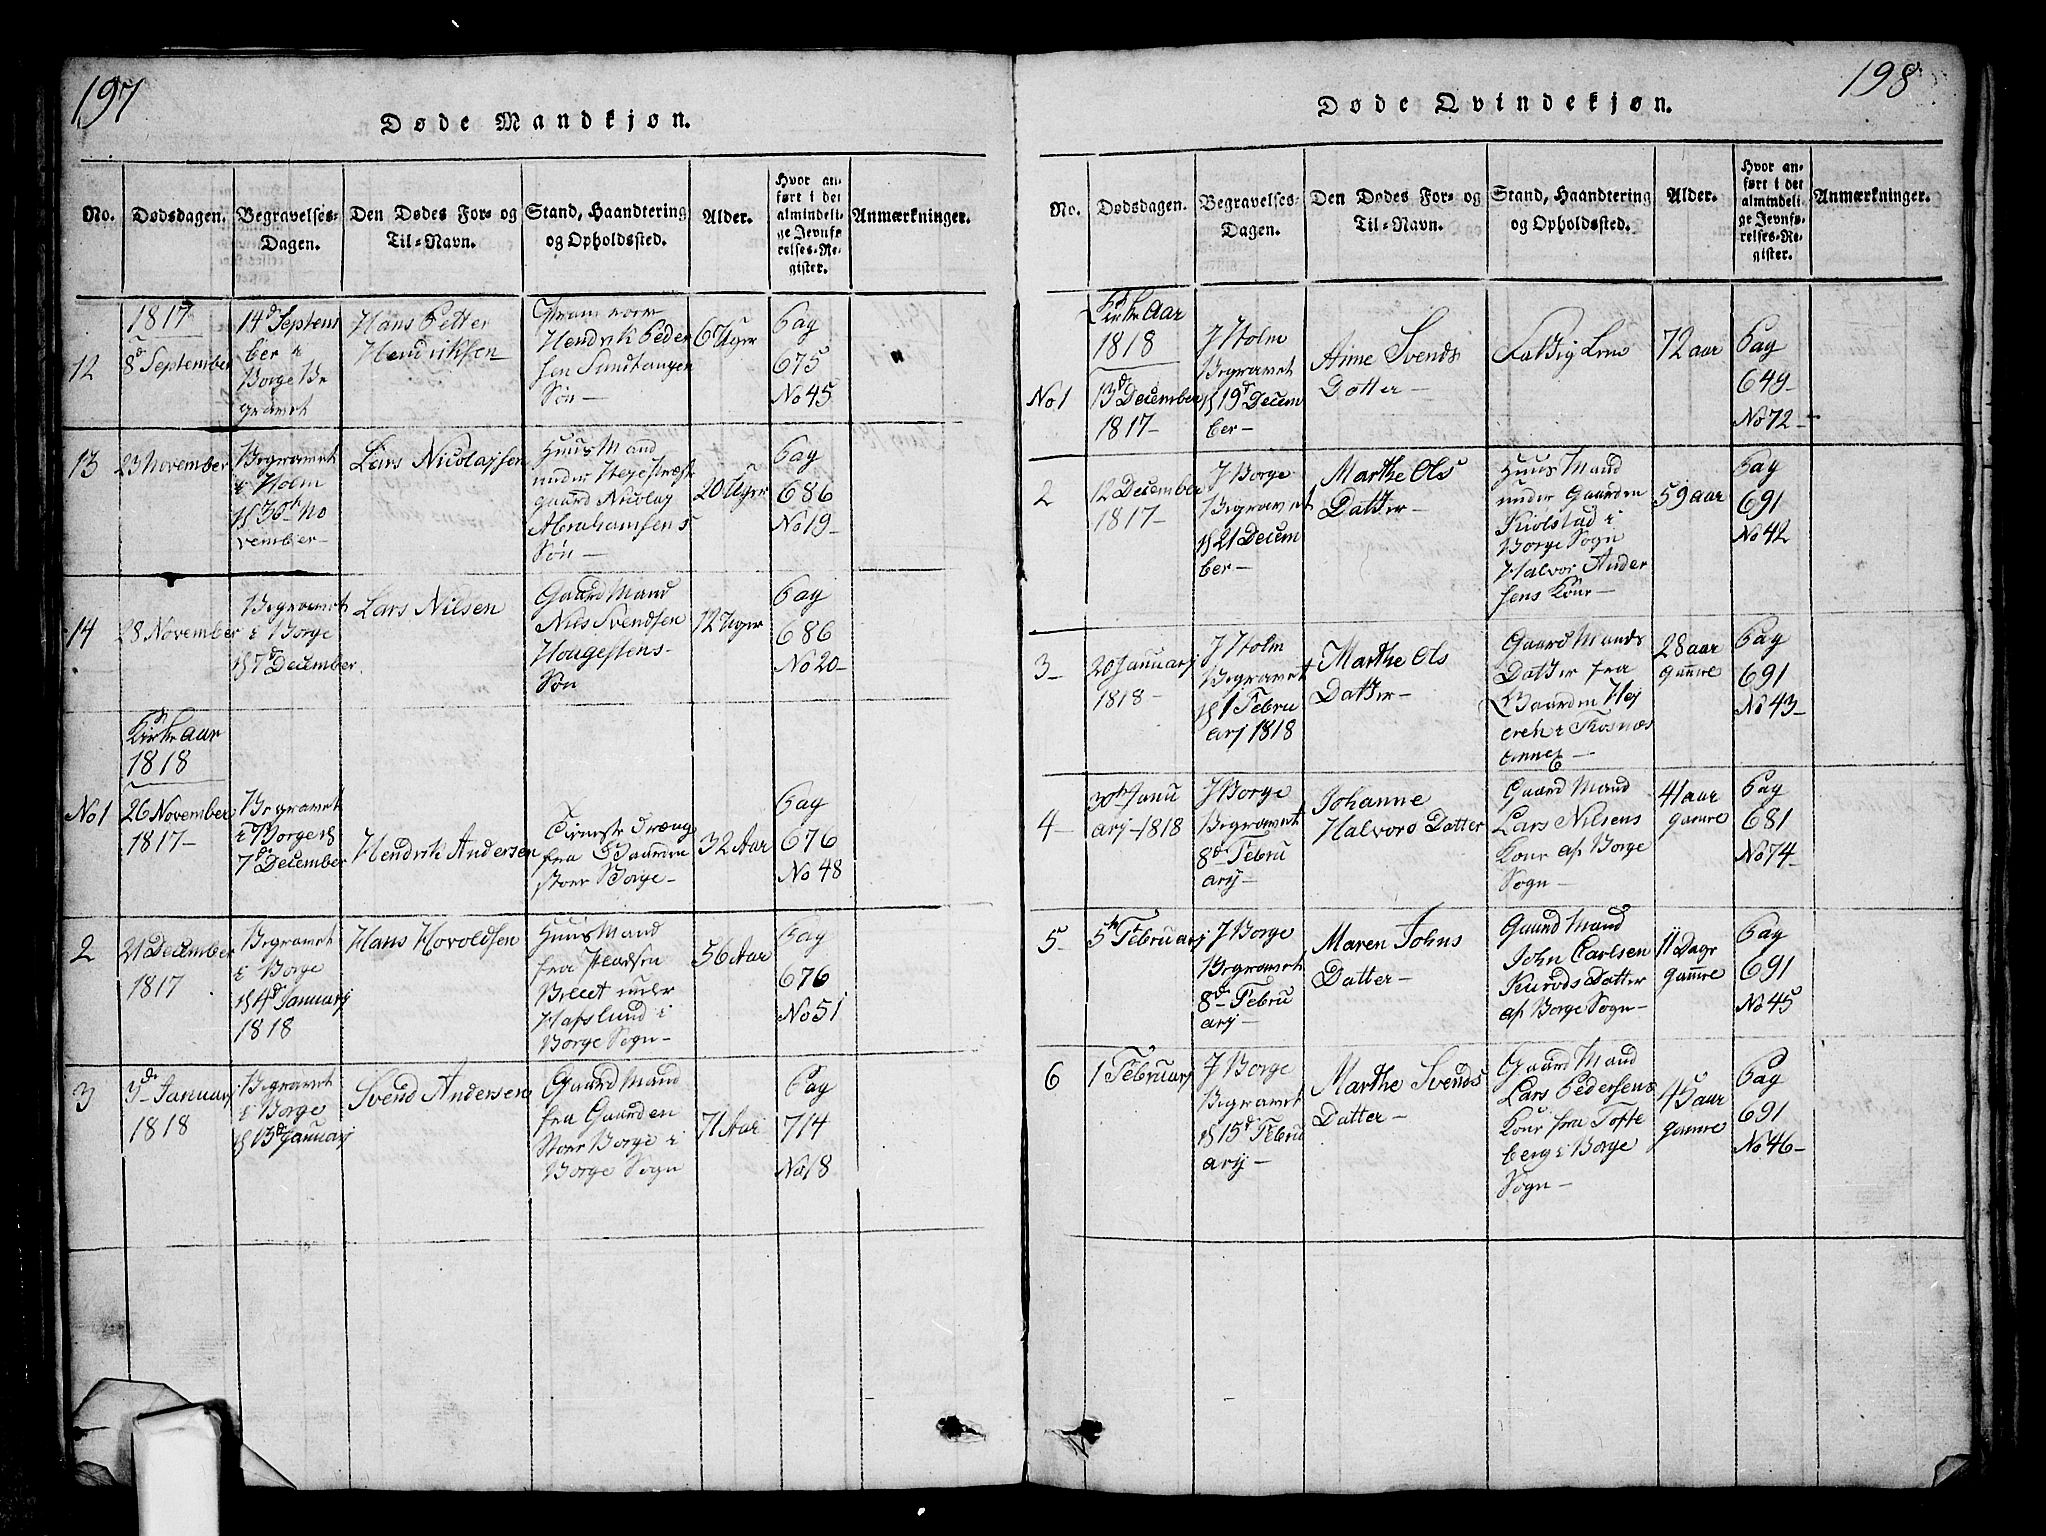 197
Døde Mandkjøn.
No.
Dødsdagen.
Begravelses-
Dagen.
Den Dødes For- og
Til-Navn.
Stand, Haandtering
og Opholdssted.
Alder.
Hvor an-
ført i det
almindeli-
ge Jevnfø-
relses-Re-
gister.
Anmærkninger.
12
1817
8d September
14d Septem
ber i
Borge Be
gravet
Hans Petter
Hendriksen
Hendrik Peder
sen Sundtangen
Søn
6 Uger
Pag
675
No 45
13
23 November
Begravet
i Holm
30te No
vember
Lars Nicolaysen
Huus Mand
under
gaard Nicolay
Abrahamsens
Søn
20 Uger
Pag
686
No 19
14
28 November
Begravet
i Borge
7d December
Lars Nilsen
Gaard Mand
Niels Svendsen
Hougestens
Søn
12 Uger
Pag
686
No 20
Kirke aar
1818
No 1
26 November
1817
Begravet
i Borge
7d December
Hendrik Andersen
Tieneste Dreng
fra Gaarden
Store Borge
32 Aar
Pag
676
No 48
2
21 December
1817
Begravet
i Borge
4d Januarj
1818
Hans Horoldsen
Huus Mand
fra Pladsen
under
Hafslund i
Borge Sogn
56 Aar
Pag
676
No 51
3
3de Januarj
1818
Begravet
i Borge
13d Januarj
Svend Andersen
Gaard Mand
fra Gaarden
Store Borge i
Borge Sogn
71 Aar
Pag
714
No 18
198
Døde Qvindekjøn.
No.
Dødsdagen.
Begravelses-
Dagen.
Den Dødes For- og
Til-Navn.
Stand, Haandtering
og Opholdssted.
Alder.
Hvor an-
ført i det
almindeli-
ge Jevnfø-
relses-Re-
gister.
Anmærkninger.
No 1
Kirke Aar
1818
13d December
1817
J Holm
Begravet
19d Decem
ber
Aime Svends
Datter
Fattig Lem
72 aar
Pag
649
No 72
2
12 December
1817
J Borge
Begravet
21 Decem
ber
Marthe Ols
Datter
Huus Mand
under Gaarden
Kiolstad i
Borge Sogn
Halvor Ander
sens Kone
59 aar
Pag
691
No 42
3
20 Januarj
1818
J Holm
Begravet
1 Febru
arj 1818
Marthe Ols
Datter
Gaard Mands
Datter fra
Gaarden
annex
28 aar
gamle
Pag
691
No 43
4
30te Janu
arj 1818
J Borge
Begravet
8de Febru
arij
Johanne
Halvors Datter
Gaard Mand
Lars Nilsens
Kone af Borge
Sogn
41 aar
gamle
Pag
681
No 74
5
5te Februarj
J Borge
Begravet
8de Febru
arij
Maren Johns
Datter
Gaard Mand
John Carlsen
Datter
af Borge Sogn
11 Dage
gamle
Pag
691
No 45
6
1 Februarj
J Borge
Begravet
15d Febru
arij
Marthe Svends
Datter
Gaard Mand
Lars Pedersens
Kone fra Tofte
berg i Borge
Sogn
45 aar
gamle
Pag
691
No 46